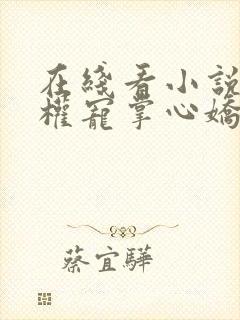 在綫看小説
權寵掌心嬌
蔡宜驊